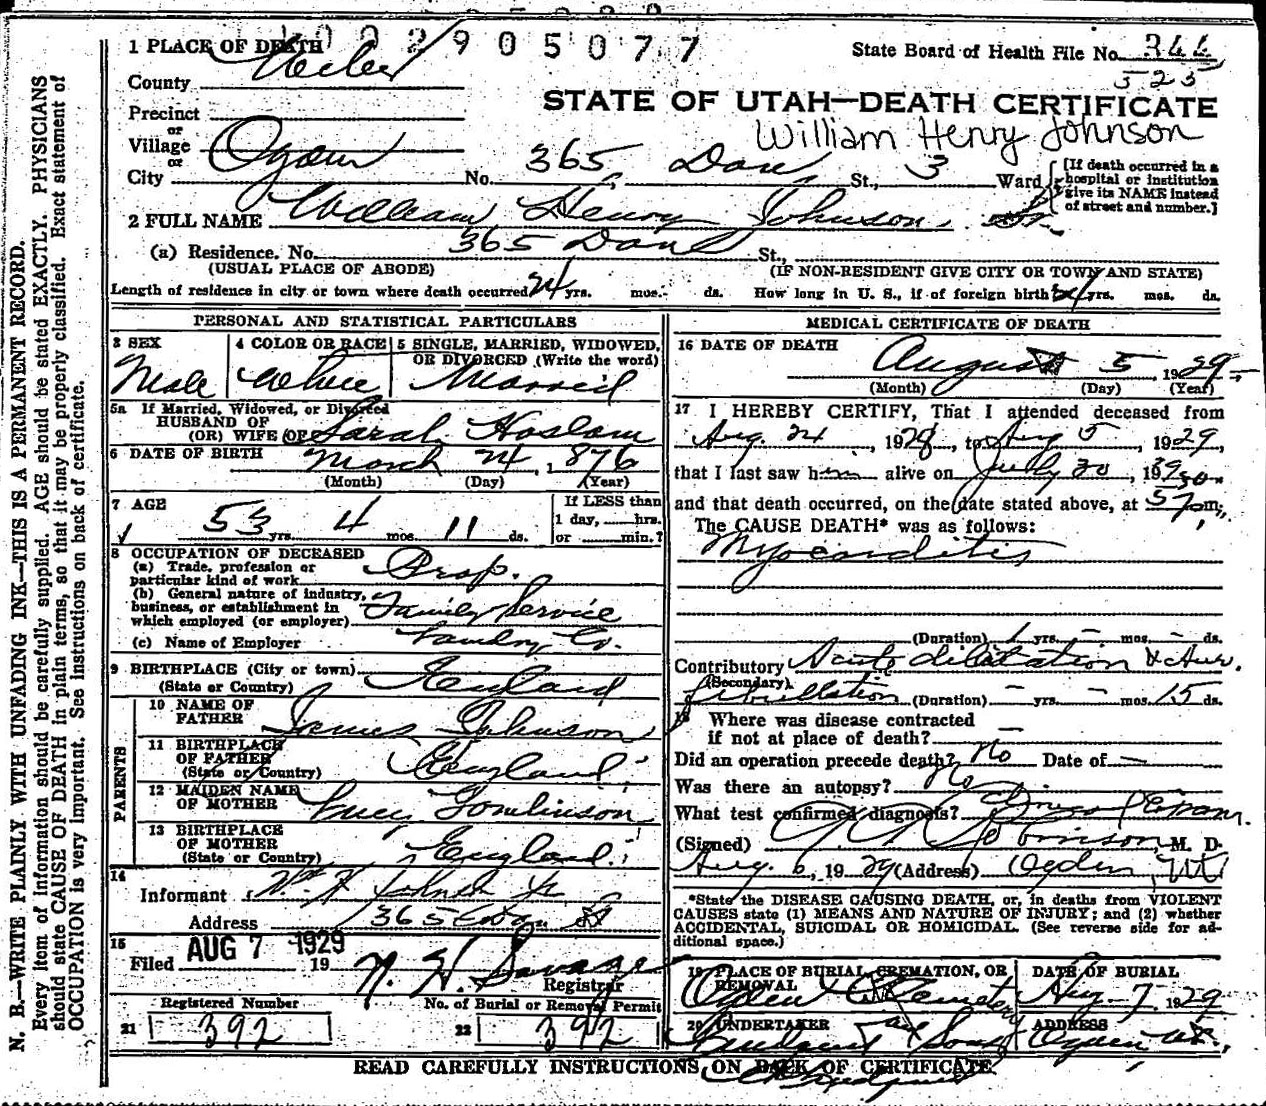 002905077
1 PLACE OF DEATH
State Board of Health File No. 344
County Weber
525
STATE OF UTAH—DEATH CERTIFICATE
Precinct
or
William Henry Johnson
Village
or
City Ogden No. 365 Dan St., 3 Ward
[If death occurred in a
hospital or institution
give its NAME instead
of street and number.]
2 FULL NAME William Henry Johnson. Sr.
(a) Residence. No. 365 Dan St.,
(USUAL PLACE OF ABODE) (IF NON-RESIDENT GIVE CITY OR TOWN AND STATE)
Length of residence in city or town where death occurred 24 yrs. mos. ds. How long in U. S., if of foreign birth? yrs. mos. ds.
PERSONAL AND STATISTICAL PARTICULARS
3 SEX
Male
4 COLOR OR RACE
White
5 SINGLE, MARRIED, WIDOWED,
OR DIVORCED (Write the word)
Married
5a If Married, Widowed, or Divorced
HUSBAND OF
(OR) WIFE OF Sarah Haslam
6 DATE OF BIRTH March 24, 1876
(Month) (Day) (Year)
7 AGE
53 yrs. 4 mos. 11 ds.
If LESS than
1 day, hrs.
or min.?
8 OCCUPATION OF DECEASED
(a) Trade, profession or
particular kind of work Prop.
(b) General nature of industry,
business, or establishment in
which employed (or employer) Family Service
(c) Name of Employer Laundry Co.
9 BIRTHPLACE (City or town)
(State or Country) England
PARENTS
10 NAME OF
FATHER James Johnson
11 BIRTHPLACE
OF FATHER
(State or Country) England
12 MAIDEN NAME
OF MOTHER Lucy Tomlinson
13 BIRTHPLACE
OF MOTHER
(State or Country) England
14
Informant Wm H Johnson Jr
Address 365 Dan St
15
Filed AUG 7 1929 19
Registrar
Registered Number No. of Burial or Removal Permit
21 392 22 392
MEDICAL CERTIFICATE OF DEATH
16 DATE OF DEATH
August 5, 1929
(Month) (Day) (Year)
17 I HEREBY CERTIFY, That I attended deceased from
Aug. 24, 1928, to Aug 5 1929,
that I last saw him alive on July 30, 19
and that death occurred, on the date stated above, at m.
The CAUSE DEATH* was as follows:
Myocarditis
(Duration) 1 yrs. – mos. – ds.
Contributory Acute dilatation & Aur.
(Secondary)
fibrillation (Duration) – yrs. – mos. 15 ds.
18 Where was disease contracted
if not at place of death? —
Did an operation precede death? No Date of —
Was there an autopsy? No
What test confirmed diagnosis? Exam.
(Signed) Robinson, M. D.
Aug. 6, 1929 (Address) Ogden, Ut
*State the DISEASE CAUSING DEATH, or, in deaths from VIOLENT
CAUSES state (1) MEANS AND NATURE OF INJURY; and (2) whether
ACCIDENTAL, SUICIDAL OR HOMICIDAL. (See reverse side for ad-
ditional space.)
19 PLACE OF BURIAL, CREMATION, OR
REMOVAL
Ogden Cemetery
DATE OF BURIAL
Aug-7, 1929
20 UNDERTAKER
Sons
ADDRESS
Ogden Ut.
READ CAREFULLY INSTRUCTIONS ON BACK OF CERTIFICATE.
N. B.—WRITE PLAINLY WITH UNFADING INK—THIS IS A PERMANENT RECORD.
Every item of information should be carefully supplied. AGE should be stated EXACTLY. PHYSICIANS
should state CAUSE OF DEATH in plain terms, so that it may be properly classified. Exact statement of
OCCUPATION is very important. See instructions on back of certificate.